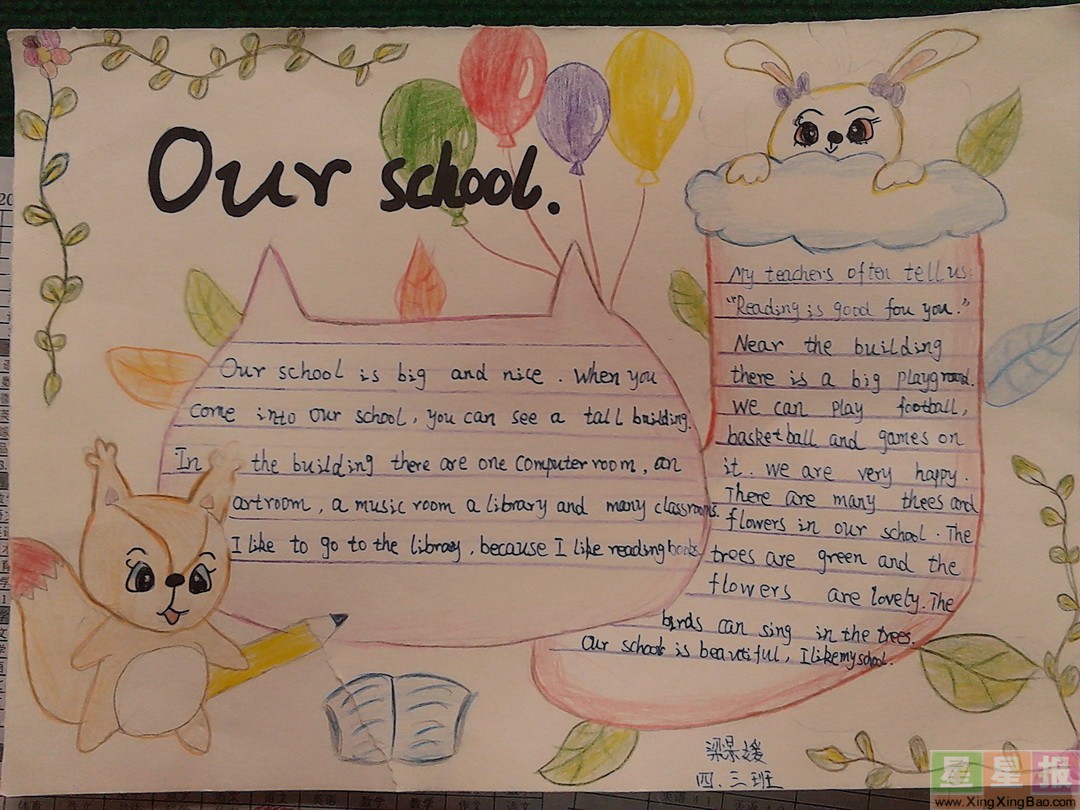 Our school.
Our school is big and nice. When you
come into our school, you can see a tall building.
In the building there are one computer room, an
artroom, a music room a library and many classrooms.
I like to go to the library, because I like reading books
My teachers often tell us:
"Reading is good fou you."
Near the building
there is a big playground.
We can play football,
basketball and games on
it. We are very happy.
There are many thees and
flowers in our school. The
trees are green and the
flowers are lovely. The
birds can sing in the trees.
Our school is beautiful, I like my school.
四.三班
星星报
www.XingXingBao.com